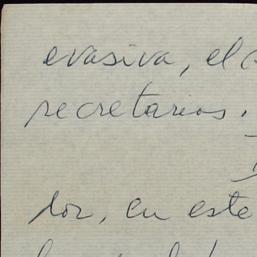 evasiva, el
secretarios.
dor, en este